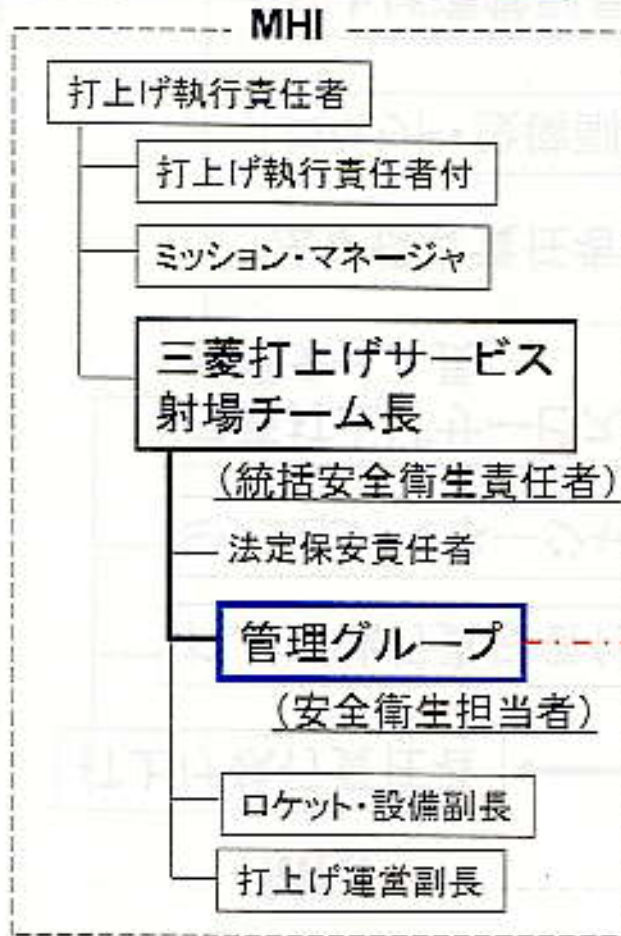 MHI
打上げ執行責任者
打上げ執行責任者付
ミッション・マネージャ
三菱打上げサービス
射場チーム長
(統括安全衛生責任者)
法定保安責任者
管理グループ
(安全衛生担当者)
ロケット・設備副長
打上げ運営副長